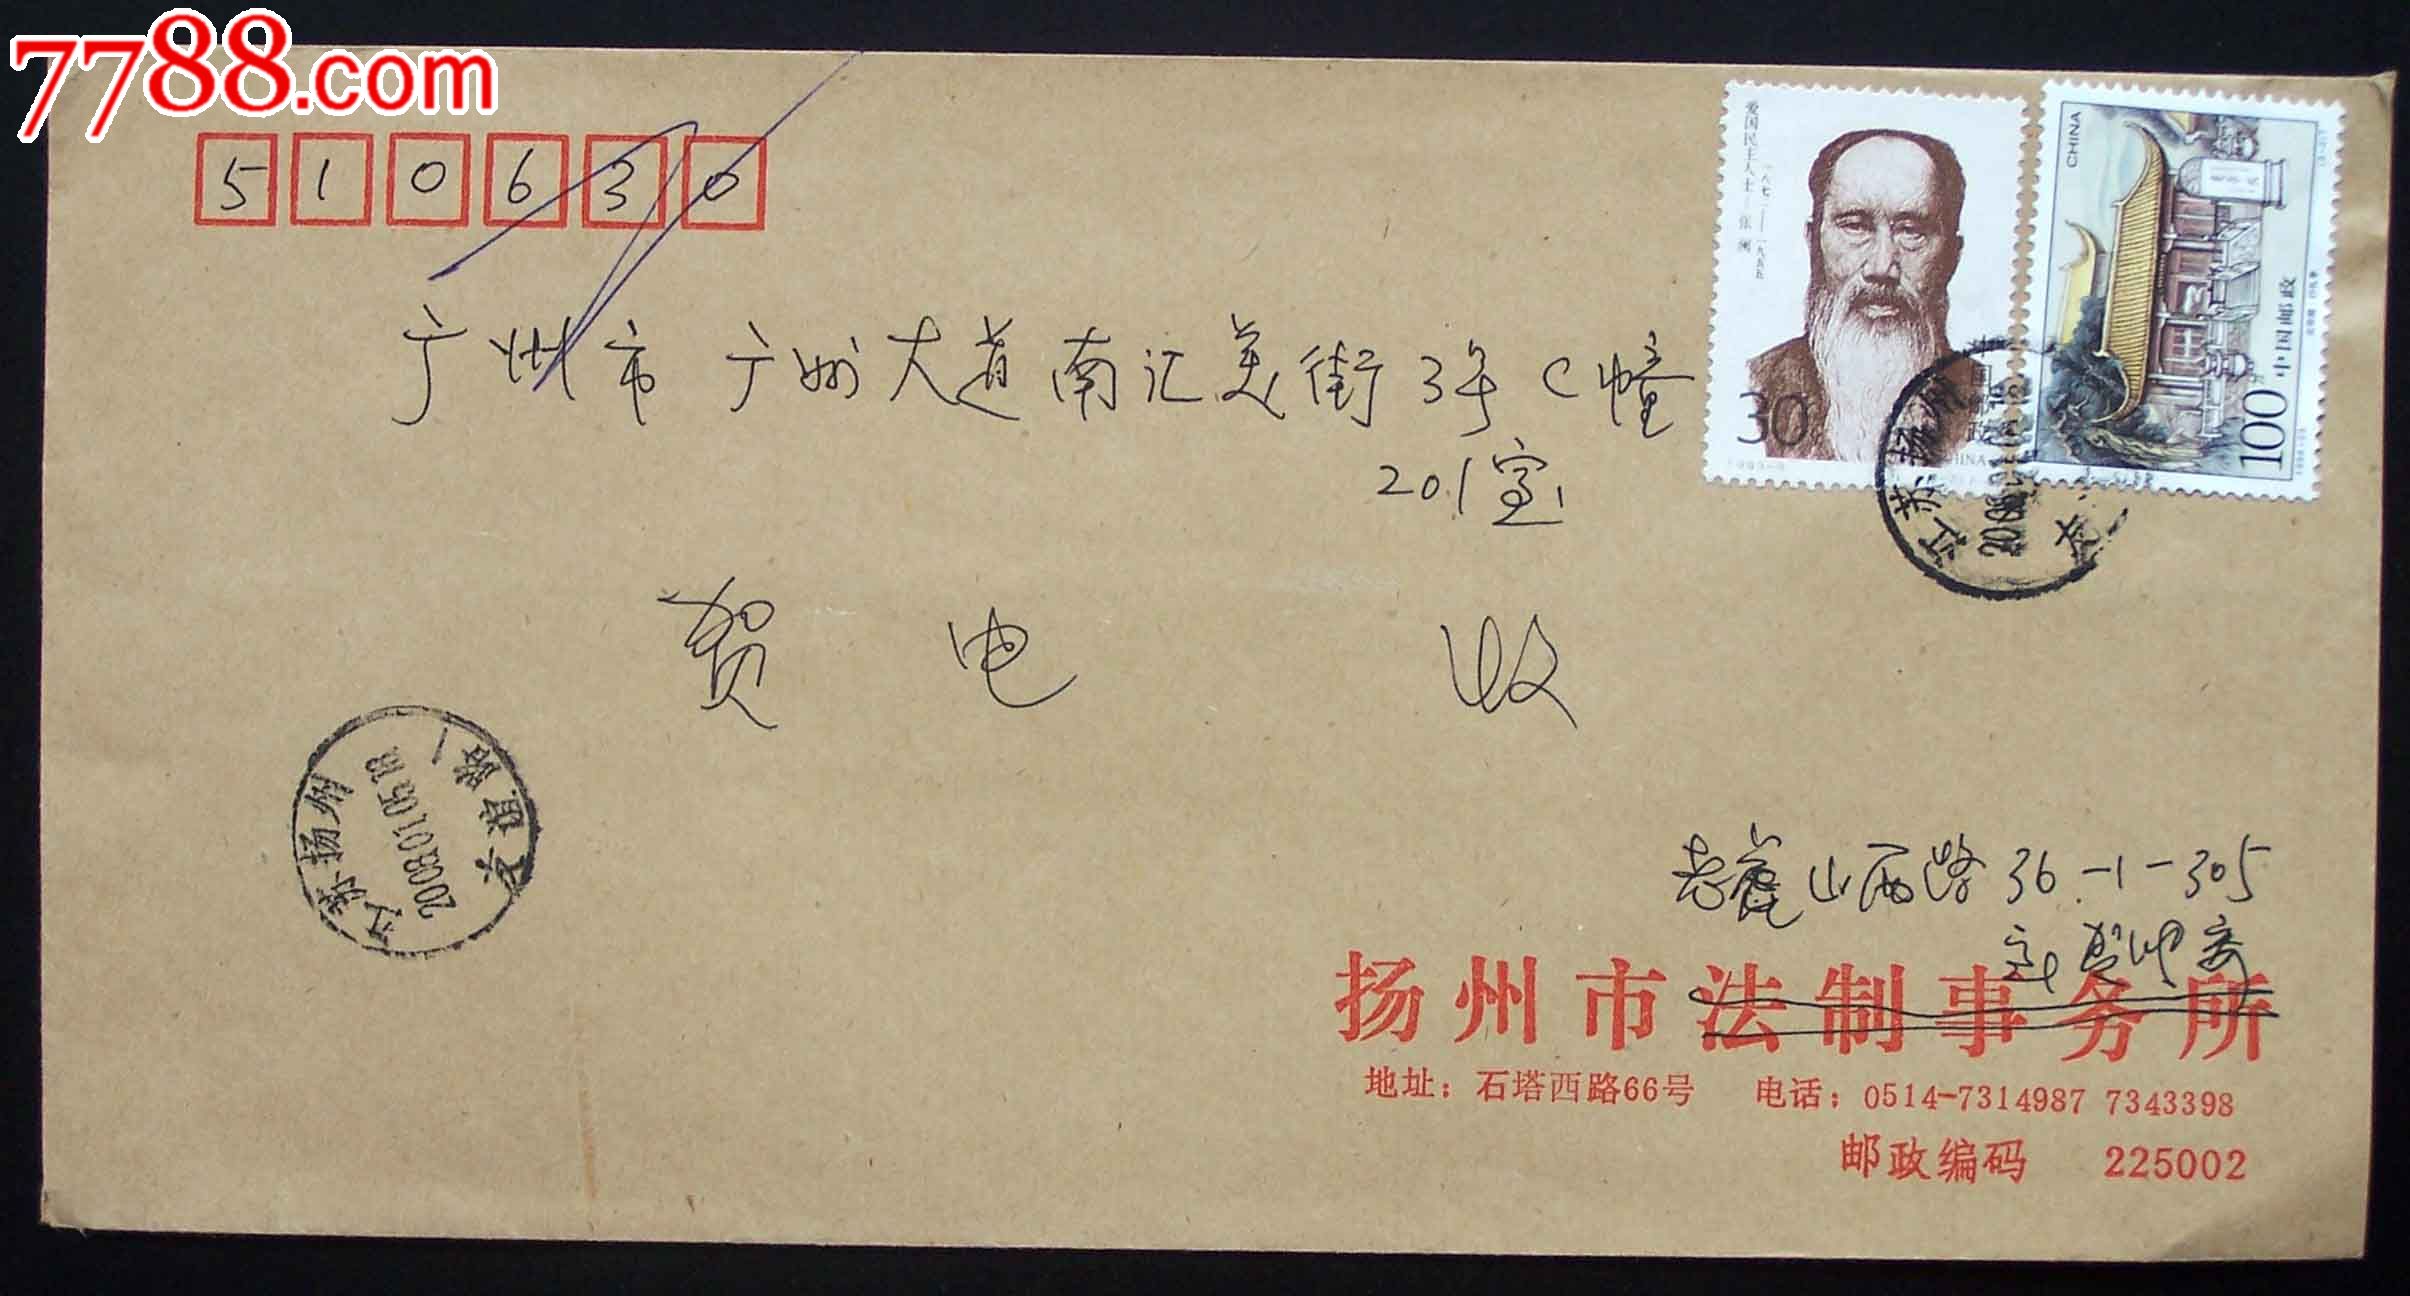 7788.com
510630
爱国民主人士—张澜
一八七二——一九五五
30
1993-8
CHINA
CHINA
中国邮政
100
广州市 广州大道南汇美街3号C幢
201室
贺 电 收
江苏扬州
江苏扬州
2008.01.05.18
文昌路
路36-1-305
扬州市法制事务所
地址：石塔西路66号 电话：0514-7314987 7343398
邮政编码 225002